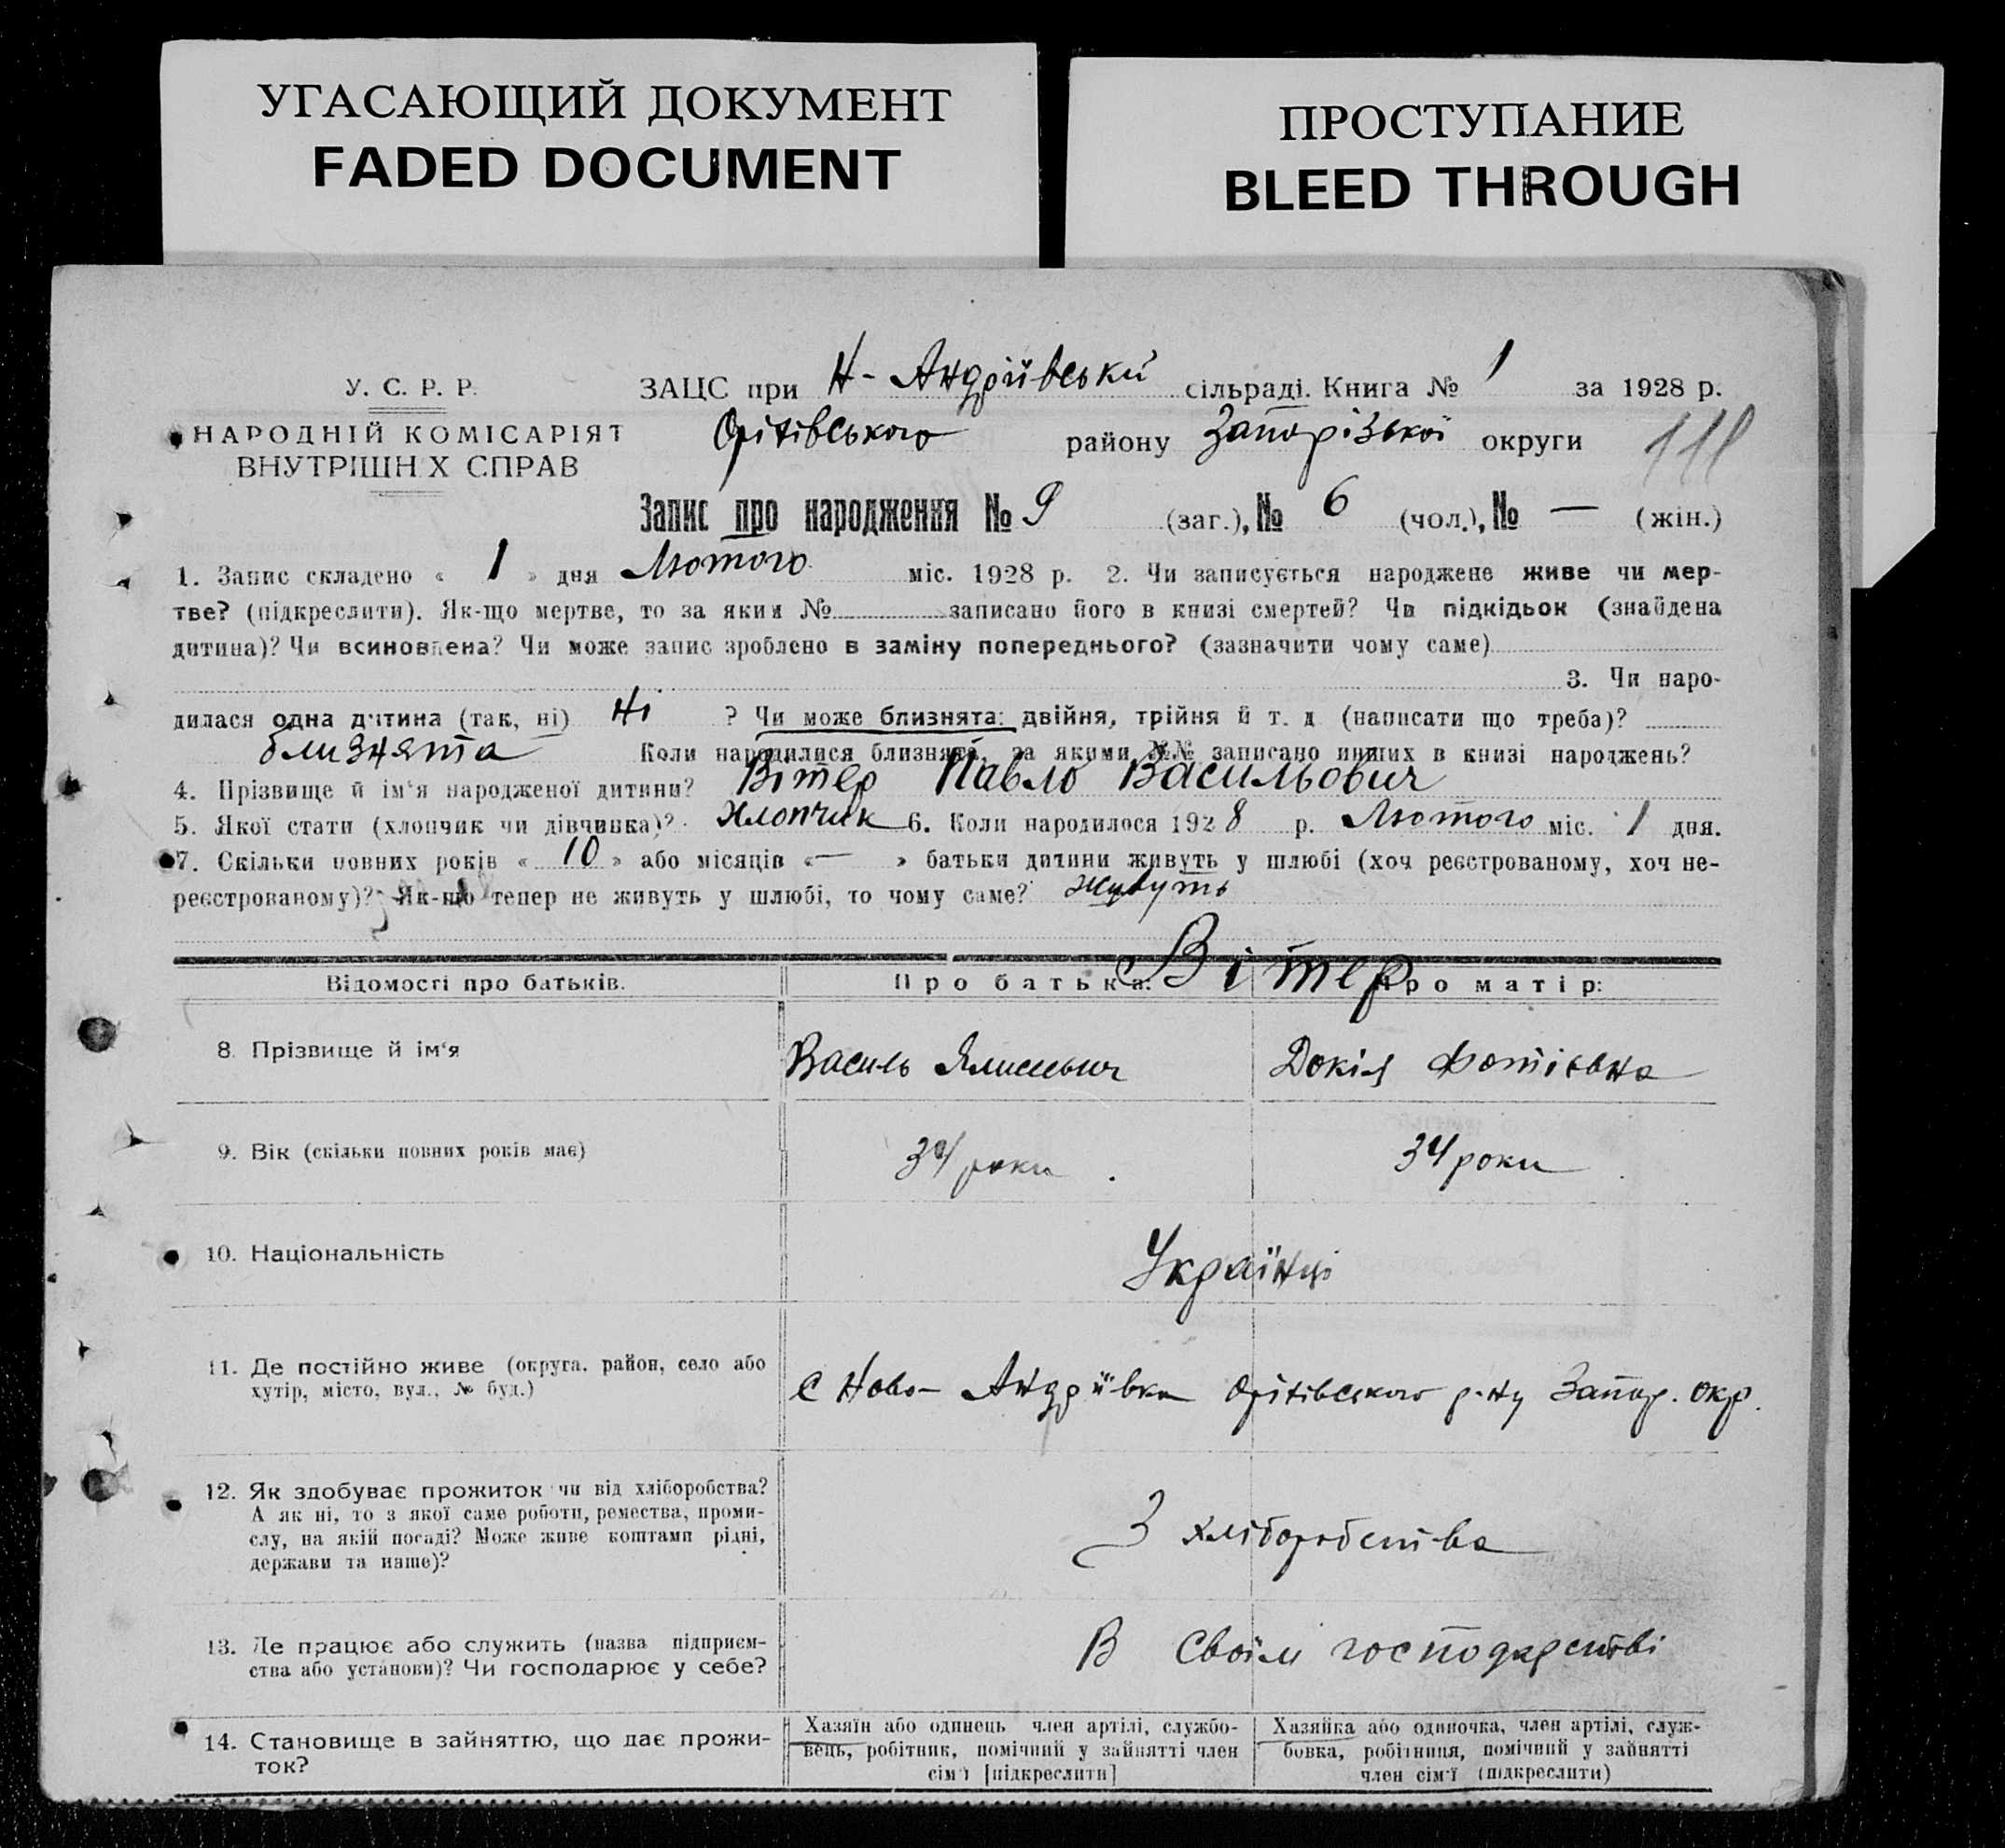 УГАСАЮЩИЙ ДОКУМЕНТ
FADED DOCUMENT
ПРОСТУПАНИЕ
BLEED THROUGH
У. С. Р. Р.
НАРОДНІЙ КОМІСАРІЯТ
ВНУТРІШН Х СПРАВ
ЗАЦС при Н-Андріївській сільраді. Книга № 1 за 1928 р.
Оріхівського району Запорізької округи
Запис про народження № 9 (заг.), № 6 (чол.), № — (жін.)
1. Запис складено « 1 » дня Лютого міс. 1928 р. 2. Чи записується народжене живе чи мер-
тве? (підкреслити). Як-що мертве, то за яким № записано його в книзі смертей? Чи підкідьок (знайдена
дитина)? Чи всиновлена? Чи може запис зроблено в заміну попереднього? (зазначити чому саме)
3. Чи наро-
дилася одна дитина (так, ні) Ні ? Чи може близнята: двійня, трійня й т. д (написати що треба)?
близнята Коли народилися близнята, за якими №№ записано инших в книзі народжень?
4. Прізвище й ім'я народженої дитини? Вітер Павло Васильович
5. Якої стати (хлопчик чи дівчинка)? Хлопчик 6. Коли народилося 1928 р. Лютого міс. 1 дня.
7. Скільки повних років « 10 » або місяців «—» батьки дитини живуть у шлюбі (хоч реєстрованому, хоч не-
реєстрованому)? Як-що тепер не живуть у шлюбі, то чому саме? живуть
Відомості про батьків. Про батька: Вітер Про матір:
8. Прізвище й ім'я Василь Докія Фотіївна
9. Вік (скільки повних років має) 34 роки 34 роки
10. Національність Українці
11. Де постійно живе (округа, район, село або
хутір, місто, вул., № буд.) с Ново-Андріївка Оріхівського р-ну Запор. окр.
12. Як здобуває прожиток чи від хліборобства?
А як ні, то з якої саме роботи, ремества, проми-
слу, на якій посаді? Може живе коштами рідні,
держави та инше)?
З хліборобства
13. Де працює або служить (назва підприєм-
ства або установи)? Чи господарює у себе?
В своїм господарстві
14. Становище в зайняттю, що дає прожи-
ток?
Хазяїн або одинець член артілі, службо-
вець, робітник, помічний у зайнятті член
сім'ї [підкреслити]
Хазяйка або одиночка, член артілі, служ-
бовка, робітниця, помічний у зайнятті
член сім'ї (підкреслити)